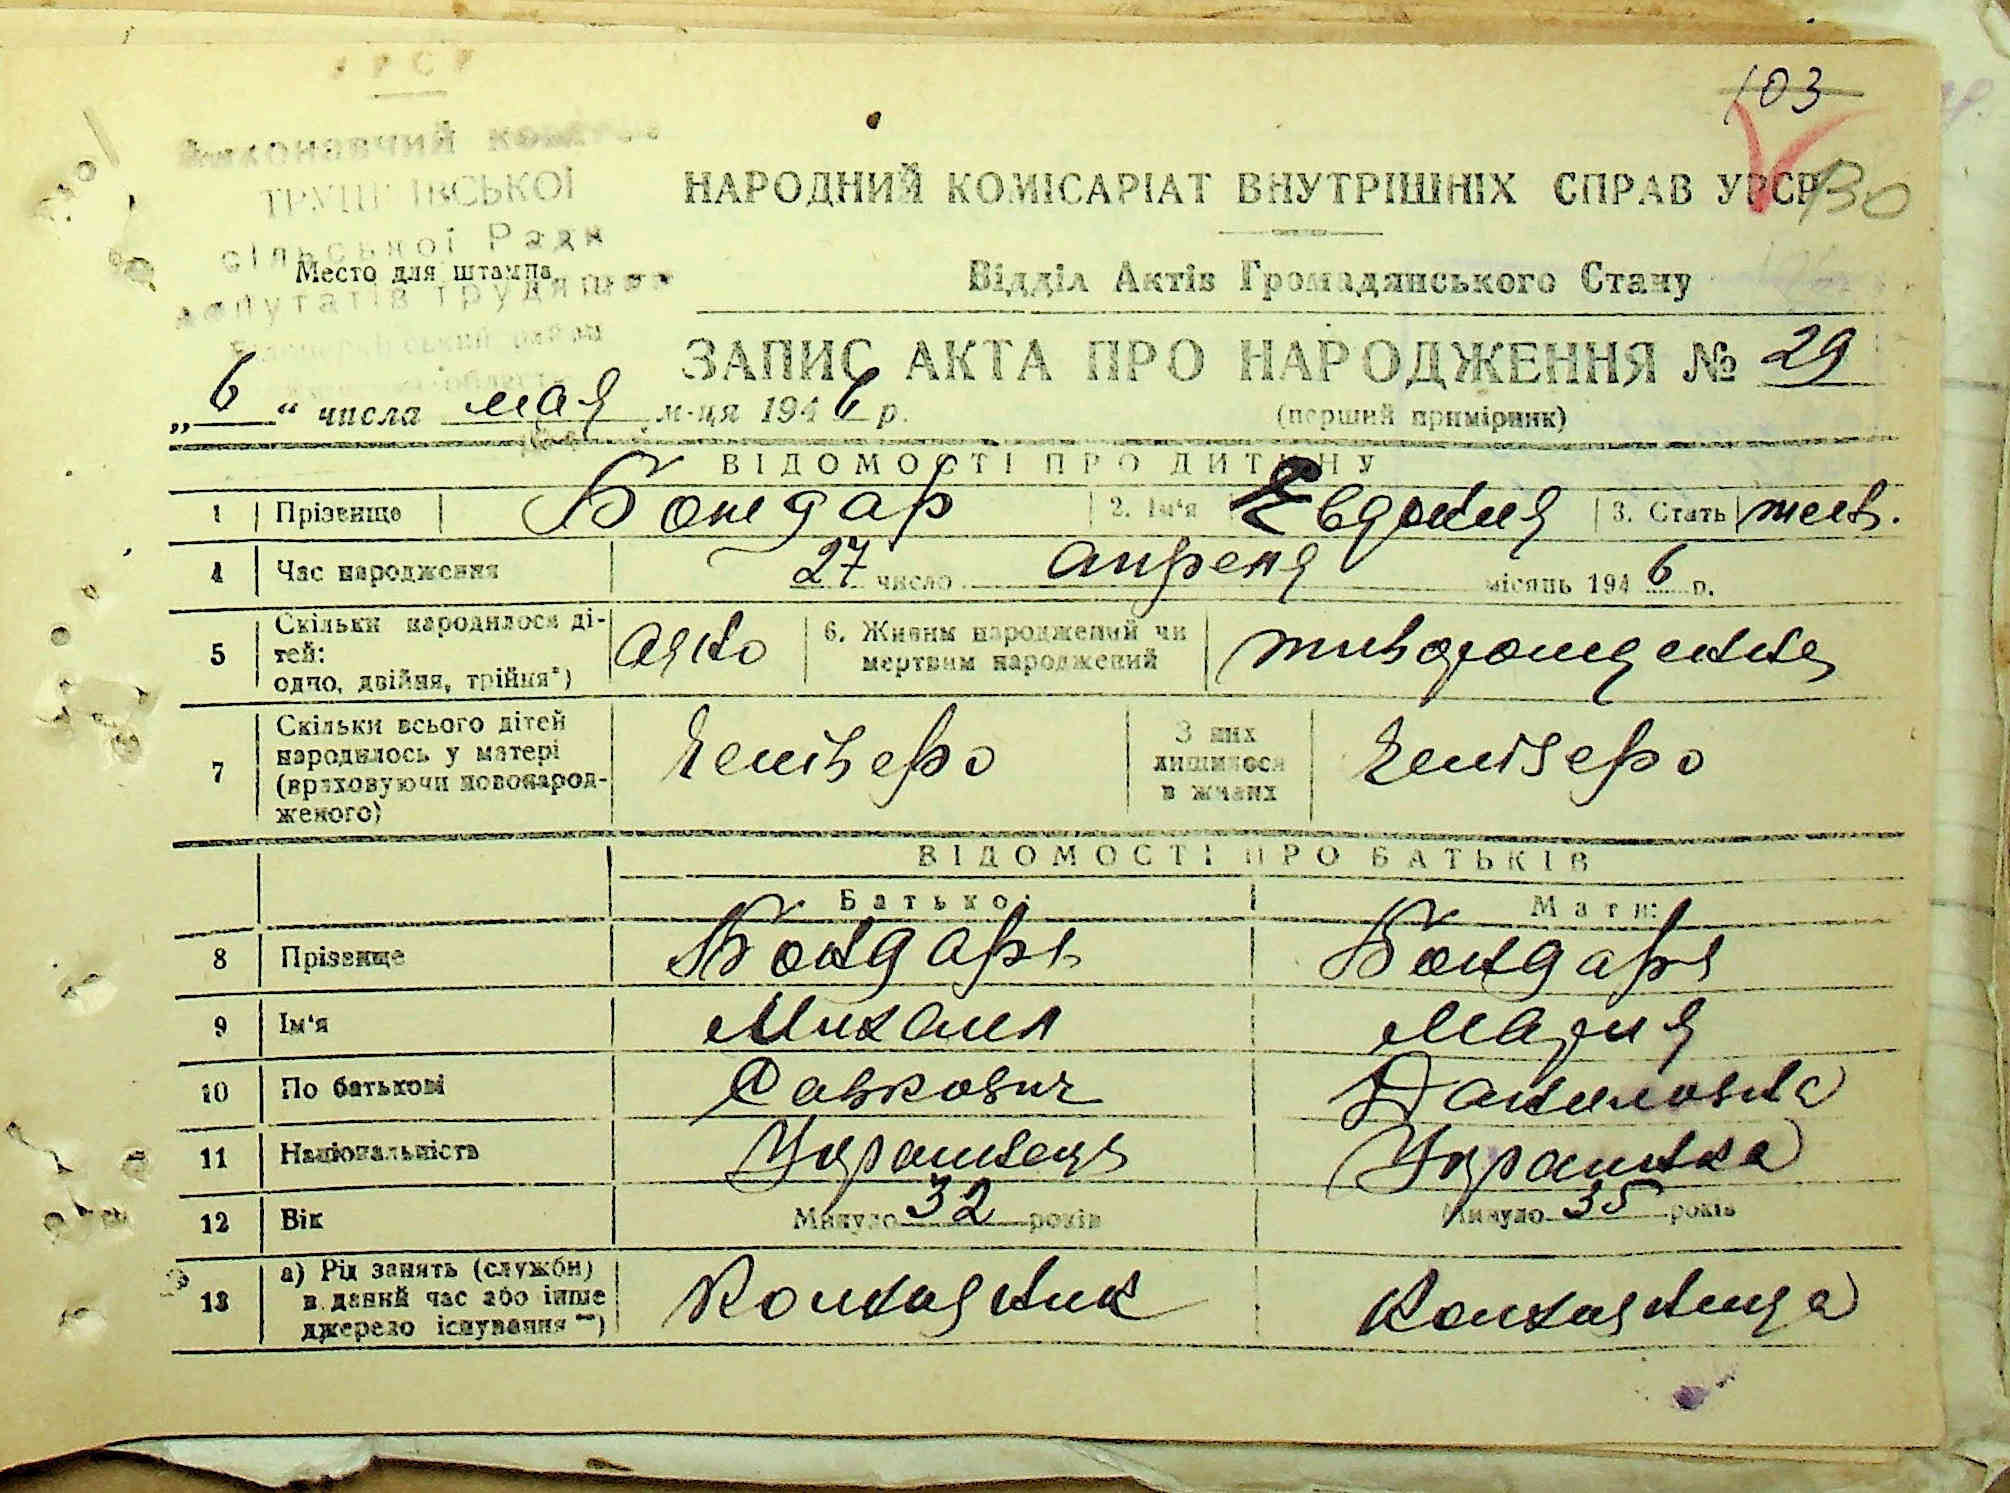 103
130
Виконавчий
ІВСЬКОЇ
сільської Ради
депутатів трудящих
Место для штампа
НАРОДНИЙ КОМІСАРІАТ ВНУТРІШНІХ СПРАВ УРСР
Відділ Актів Громадянського Стану
ЗАПИС АКТА ПРО НАРОДЖЕННЯ № 29
(перший примірник)
„6“ числа мая м-ця 1946 р.
ВІДОМОСТІ ПРО ДИТИНУ
1 Прізвище Бондар 2. Ім'я Евдокия 3. Стать жен.
4 Час народження 27 число апреля місяць 1946 р.
5 Скільки народилося дітей: одно, двійня, трійня*) одно 6. Живим народжений чи мертвим народжений живорожденная
7 Скільки всього дітей народилось у матері (враховуючи новонародженого) четверо З них лишилося в живих четверо
ВІДОМОСТІ ПРО БАТЬКІВ
Батько: Мати:
8 Прізвище Бондарь Бондарь
9 Ім'я Михаил Мария
10 По батькові Савкович Даниловна
11 Національність Украинець Украинка
12 Вік Минуло 32 років Минуло 35 років
13 а) Рід занять (служби) в даний час або інше джерело існування **) Колхозник Колхозница